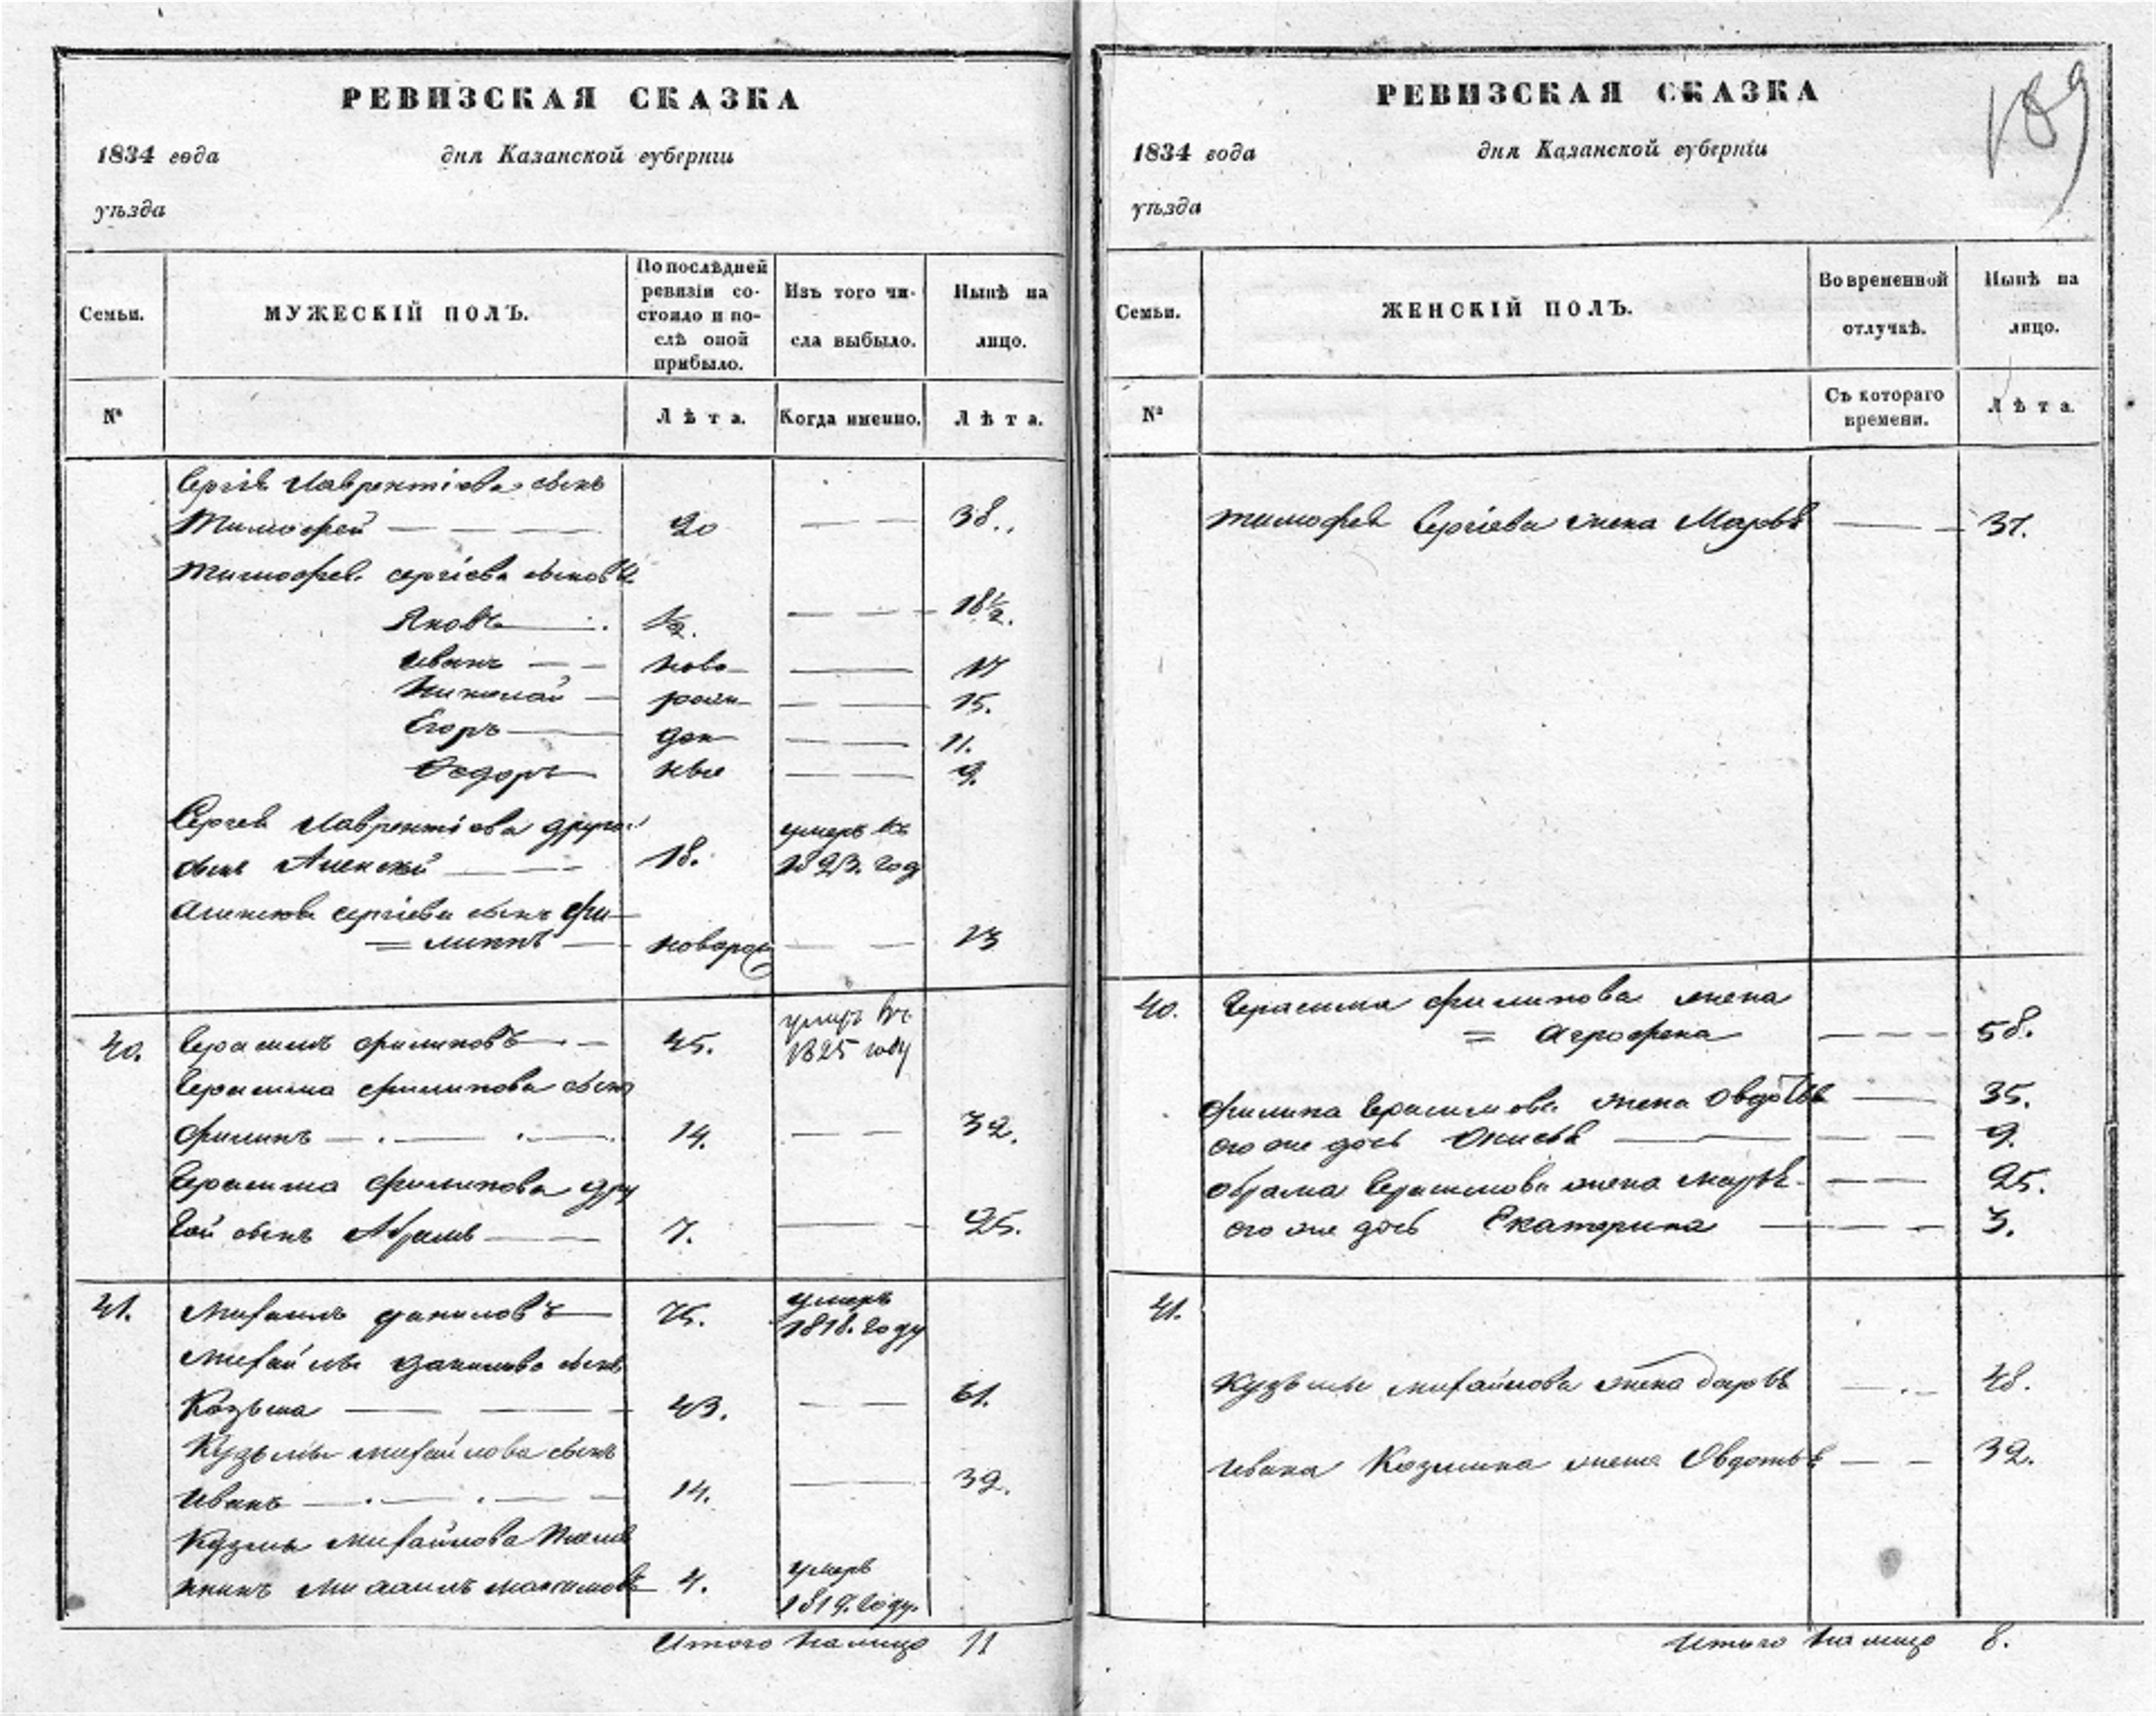 РЕВИЗСКАЯ СКАЗКА
1834 года дня Казанской губерніи
уѣзда
Семьи.
МУЖЕСКІЙ ПОЛЪ.
По послѣдней ревизіи состояло и послѣ оной прибыло.
Изъ того числа выбыло.
Нынѣ на лицо.
№
Лѣта.
Когда именно.
Лѣта.
Сергѣя Лаврентіева сынъ
Тимофей 20 38.
Тимофея сергіева сыновья
Яковъ ½. 18½.
Иванъ ново 17
Николай рож 15.
Егоръ ден 11.
Ѳедоръ ные 9.
Сергея Лаврентіева другой умеръ въ
сынъ Алексей 18. 1823. году
Алексея сергіева сынъ фи
= липпъ новорож 13
40. Герасимъ филиповъ 45. умеръ въ 1825 году
Герасима филипова сынъ
Филипъ 14. 32.
Герасима филипова дру
гой сынъ Абрамъ 7. 25.
41. Михаилъ даниловъ 75. умеръ 1818. году
Михайлы данилова сынъ
Козьма 43. 61.
Кузьмы михайлова сынъ
Иванъ 14. 32.
Кузмы михайлова племя
никъ максимовъ 4. умеръ 1819. году.
Итого на лицо 11
РЕВИЗСКАЯ СКАЗКА
189
1834 года дня Казанской губерніи
уѣзда
Семьи.
ЖЕНСКІЙ ПОЛЪ.
Во временной отлучкѣ.
Нынѣ на лицо.
№
Съ котораго времени.
Лѣта.
Тимофея Сергіева жена Марья 37.
40. Герасима филипова жена
= Агрофена 58.
Филипа Герасимова жена Овдотья 35.
его же дочь 9.
Абрама Герасимова жена марья 25.
его же дочь Екатерина 3.
41.
Кузьмы михайлова жена дарья 48.
Ивана Козмина жена Овдотья 32.
Итого на лицо 8.